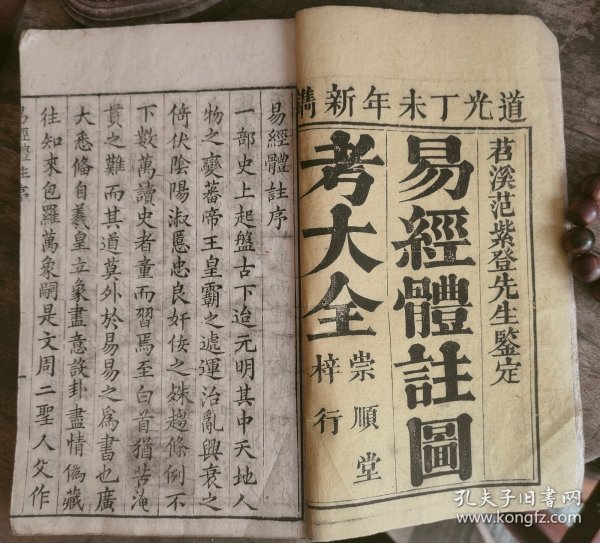 道光丁未年新鐫
苕溪范紫登先生鑒定
易經體註圖
考大全
崇順堂
梓行
易經體註序
一部史上起盤古下迨元明其中天地人
物之變蕃帝王皇霸之遞運治亂興衰之
倚伏陰陽淑慝忠良奸佞之姝趨條例不
下數萬讀史者童而習焉至白首猶苦淹
貫之難而其道莫外於易易之為書也廣
大悉備自羲皇立象盡意設卦盡情偽藏
往知來包羅萬象嗣是文周二聖人爻作
易經體註序
孔夫子旧书网
www.kongfz.com